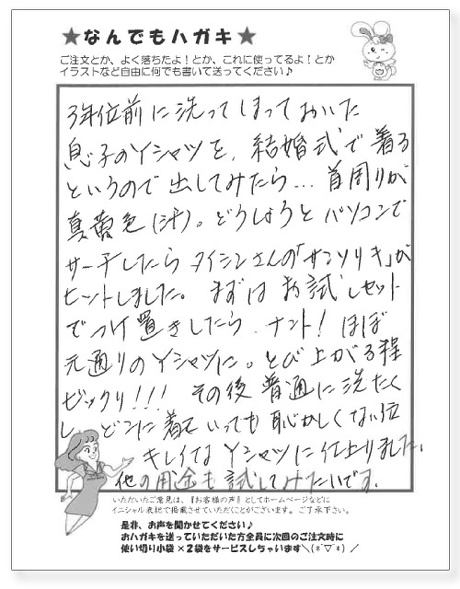 ★なんでもハガキ★
ご注文とか、よく落ちたよ!とか、これに使ってるよ!とか
イラストなど自由に何でも書いて送ってください♪
3年位前に洗ってしまっておいた
息子のYシャツを、結婚式で着る
というので出してみたら…首周りが
真黄色(汗)。どうしようとパソコンで
サーチしたらタイシンさんの「サンソリキ」が
ヒットしました。まずはお試しセット
でつけ置きしたら、ナント!ほぼ
元通りのYシャツに。とび上がる程
ビックリ!!!その後普通に洗たく
し、どこに着ていっても恥かしくない位
キレイなYシャツに仕上りました。
他の用途も試してみたいです。
いただいたご意見は、『お客様の声』としてホームページなどに
イニシャル表記で掲載させていただくことがございます。ご了承下さい。
是非、お声を聞かせてください♪
おハガキを送っていただいた方全員に次回のご注文時に
使い切り小袋×2袋をサービスしちゃいます＼(*ˆ▽ˆ*)／